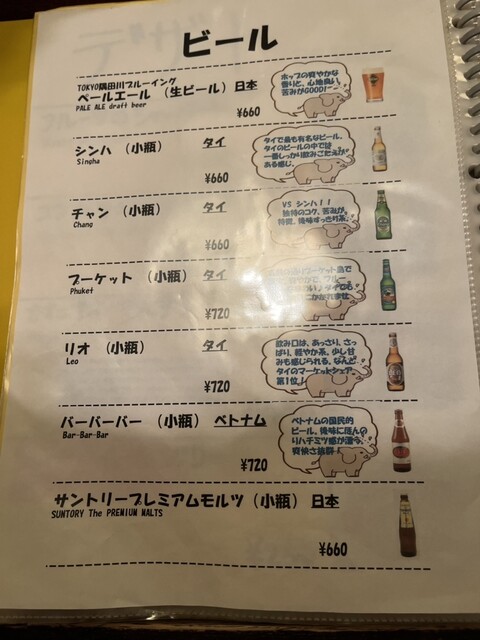 ビール
TOKYO隅田川ブルーイング
ペールエール （生ビール） 日本
PALE ALE draft beer
¥660
ホップの爽やかな
香りと、心地良い、
苦みがGOOD!
シンハ （小瓶） タイ
Singha
¥660
タイで最も有名なビール。
タイのビールの中では
一番しっかり飲みごたえが
ある感じ。
チャン （小瓶） タイ
Chang
¥660
VS シンハ！！
独特のコク、苦みが
特徴、後味すっきり系。
プーケット （小瓶） タイ
Phuket
¥720
プーケット島で
リオ （小瓶） タイ
Leo
¥720
飲み口は、あっさり、さっ
ぱり、軽やか系。少し甘
みも感じられる。なんと、
タイのマーケットシェア
第1位！
バーバーバー （小瓶） ベトナム
Bar-Bar-Bar
¥720
ベトナムの国民的
ビール、後味にほんの
りハチミツ感が漂う。
爽快さ抜群！
サントリープレミアムモルツ （小瓶） 日本
SUNTORY The PREMIUM MALTS
¥660